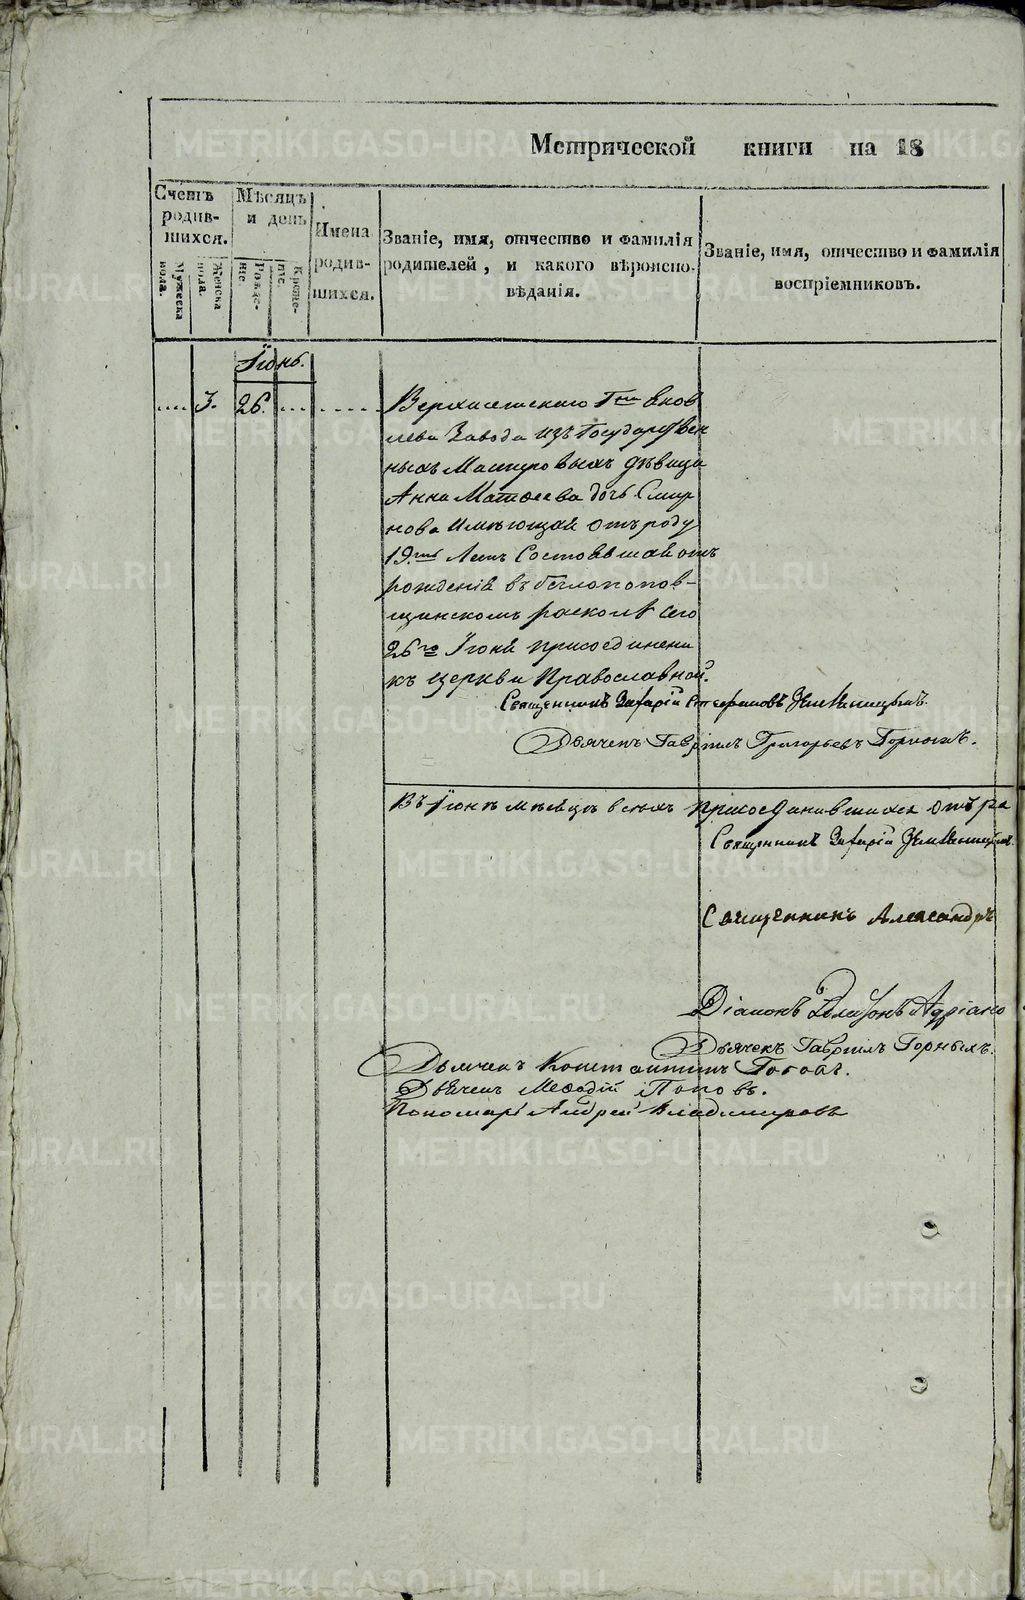 Метрической книги на 18
Счетъ родив- шихся.
Мужеска пола.
Женска пола.
Мѣсяцъ и день
Рожде- ніе
Креще- ніе
Имена родив- шихся.
Званіе, имя, отчество и фамилія родителей, и какого вѣроиспо- вѣданія.
Званіе, имя, отчество и фамилія воспріемниковъ.
Іюнь.
3. 26.
Верхисетскаго Г-на Яков
лева Завода изъ Государствен
ныхъ Мастеровыхъ дѣвица
Анна Матвеева дочь Смир
нова имѣющая отъ роду
19ть Летъ Состоявшая отъ
рожденія въ беглопопов-
щинскомъ расколѣ сего
26го Іюня присоединена
къ церкви Православной.
Священникъ Захарій Стефановъ
Дьячекъ Гавріилъ Григорьевъ Горныхъ.
Въ Іюнѣ мѣсяцѣ всехъ присоединившихся отъ ра
Священникъ Захарій
Священникъ Александръ
Діаконъ Адріано
Дьячекъ Гавріилъ Горныхъ.
Дьячекъ Константинъ Поповъ.
Дьячекъ Мефодій Поповъ.
Пономарь Андрей Владимировъ
METRIKI.GASO-URAL.RU